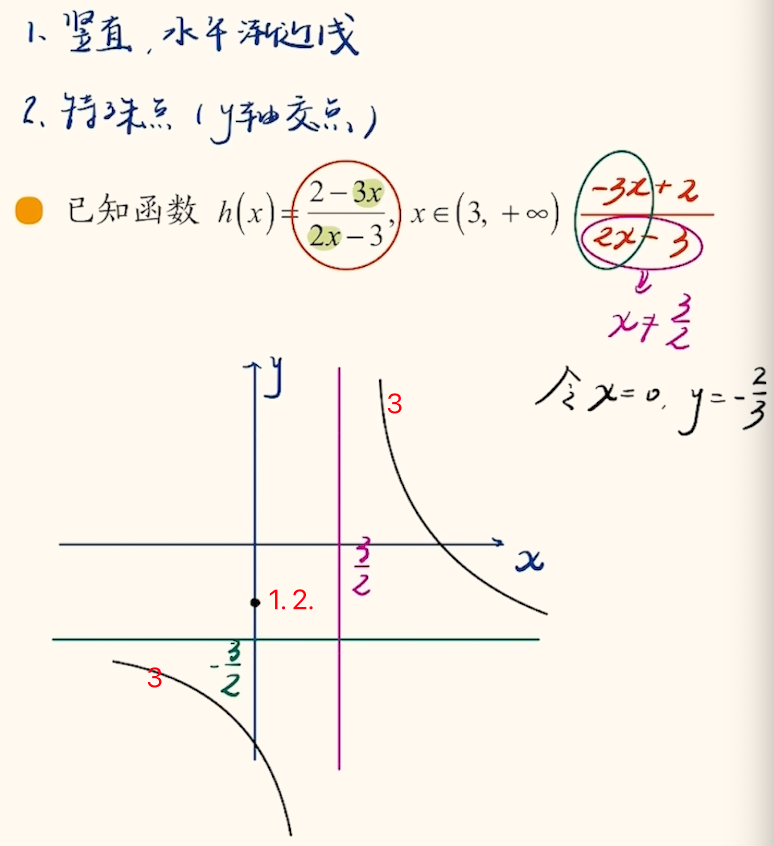 1、竖直,水平渐近线
2、特殊点(y轴交点)
已知函数 h(x)=(2-3x)/(2x-3), x∈(3, +∞) (-3x+2)/(2x-3)
x≠3/2
令x=0, y=-2/3
y
3
x
3/2
1. 2.
-3/2
3